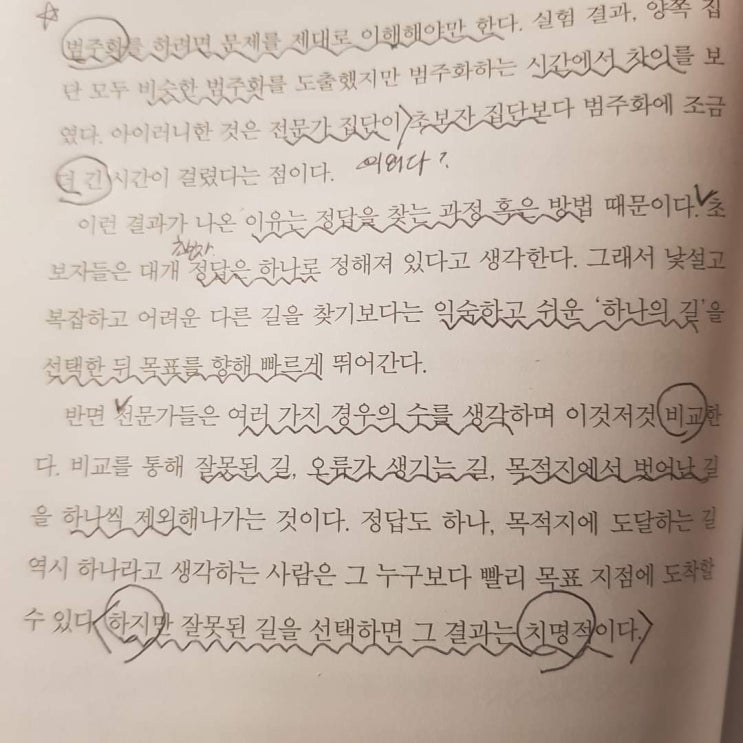 범주화를 하려면 문제를 제대로 이해해야만 한다. 실험 결과, 양쪽 집
단 모두 비슷한 범주화를 도출했지만 범주화하는 시간에서 차이를 보
였다. 아이러니한 것은 전문가 집단이 초보자 집단보다 범주화에 조금
더 긴 시간이 걸렸다는 점이다. 의외다?
이런 결과가 나온 이유는 정답을 찾는 과정 혹은 방법 때문이다. 초
보자들은 대개 정답은 하나로 정해져 있다고 생각한다. 그래서 낯설고
복잡하고 어려운 다른 길을 찾기보다는 익숙하고 쉬운 ‘하나의 길’을
선택한 뒤 목표를 향해 빠르게 뛰어간다.
반면 전문가들은 여러 가지 경우의 수를 생각하며 이것저것 비교한
다. 비교를 통해 잘못된 길, 오류가 생기는 길, 목적지에서 벗어난 길
을 하나씩 제외해나가는 것이다. 정답도 하나, 목적지에 도달하는 길
역시 하나라고 생각하는 사람은 그 누구보다 빨리 목표 지점에 도착할
수 있다. 하지만 잘못된 길을 선택하면 그 결과는 치명적이다.